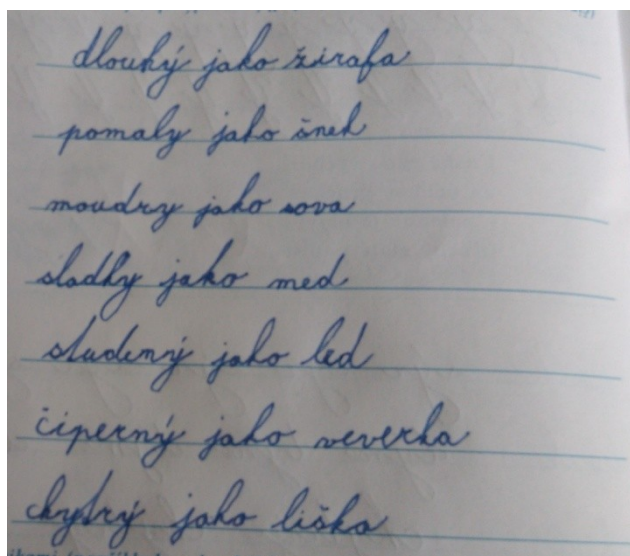 dlouhý jako žirafa
pomaly jako šnek
moudry jako sova
sladky jako med
studený jako led
čiperný jako veverka
chytrý jako liška